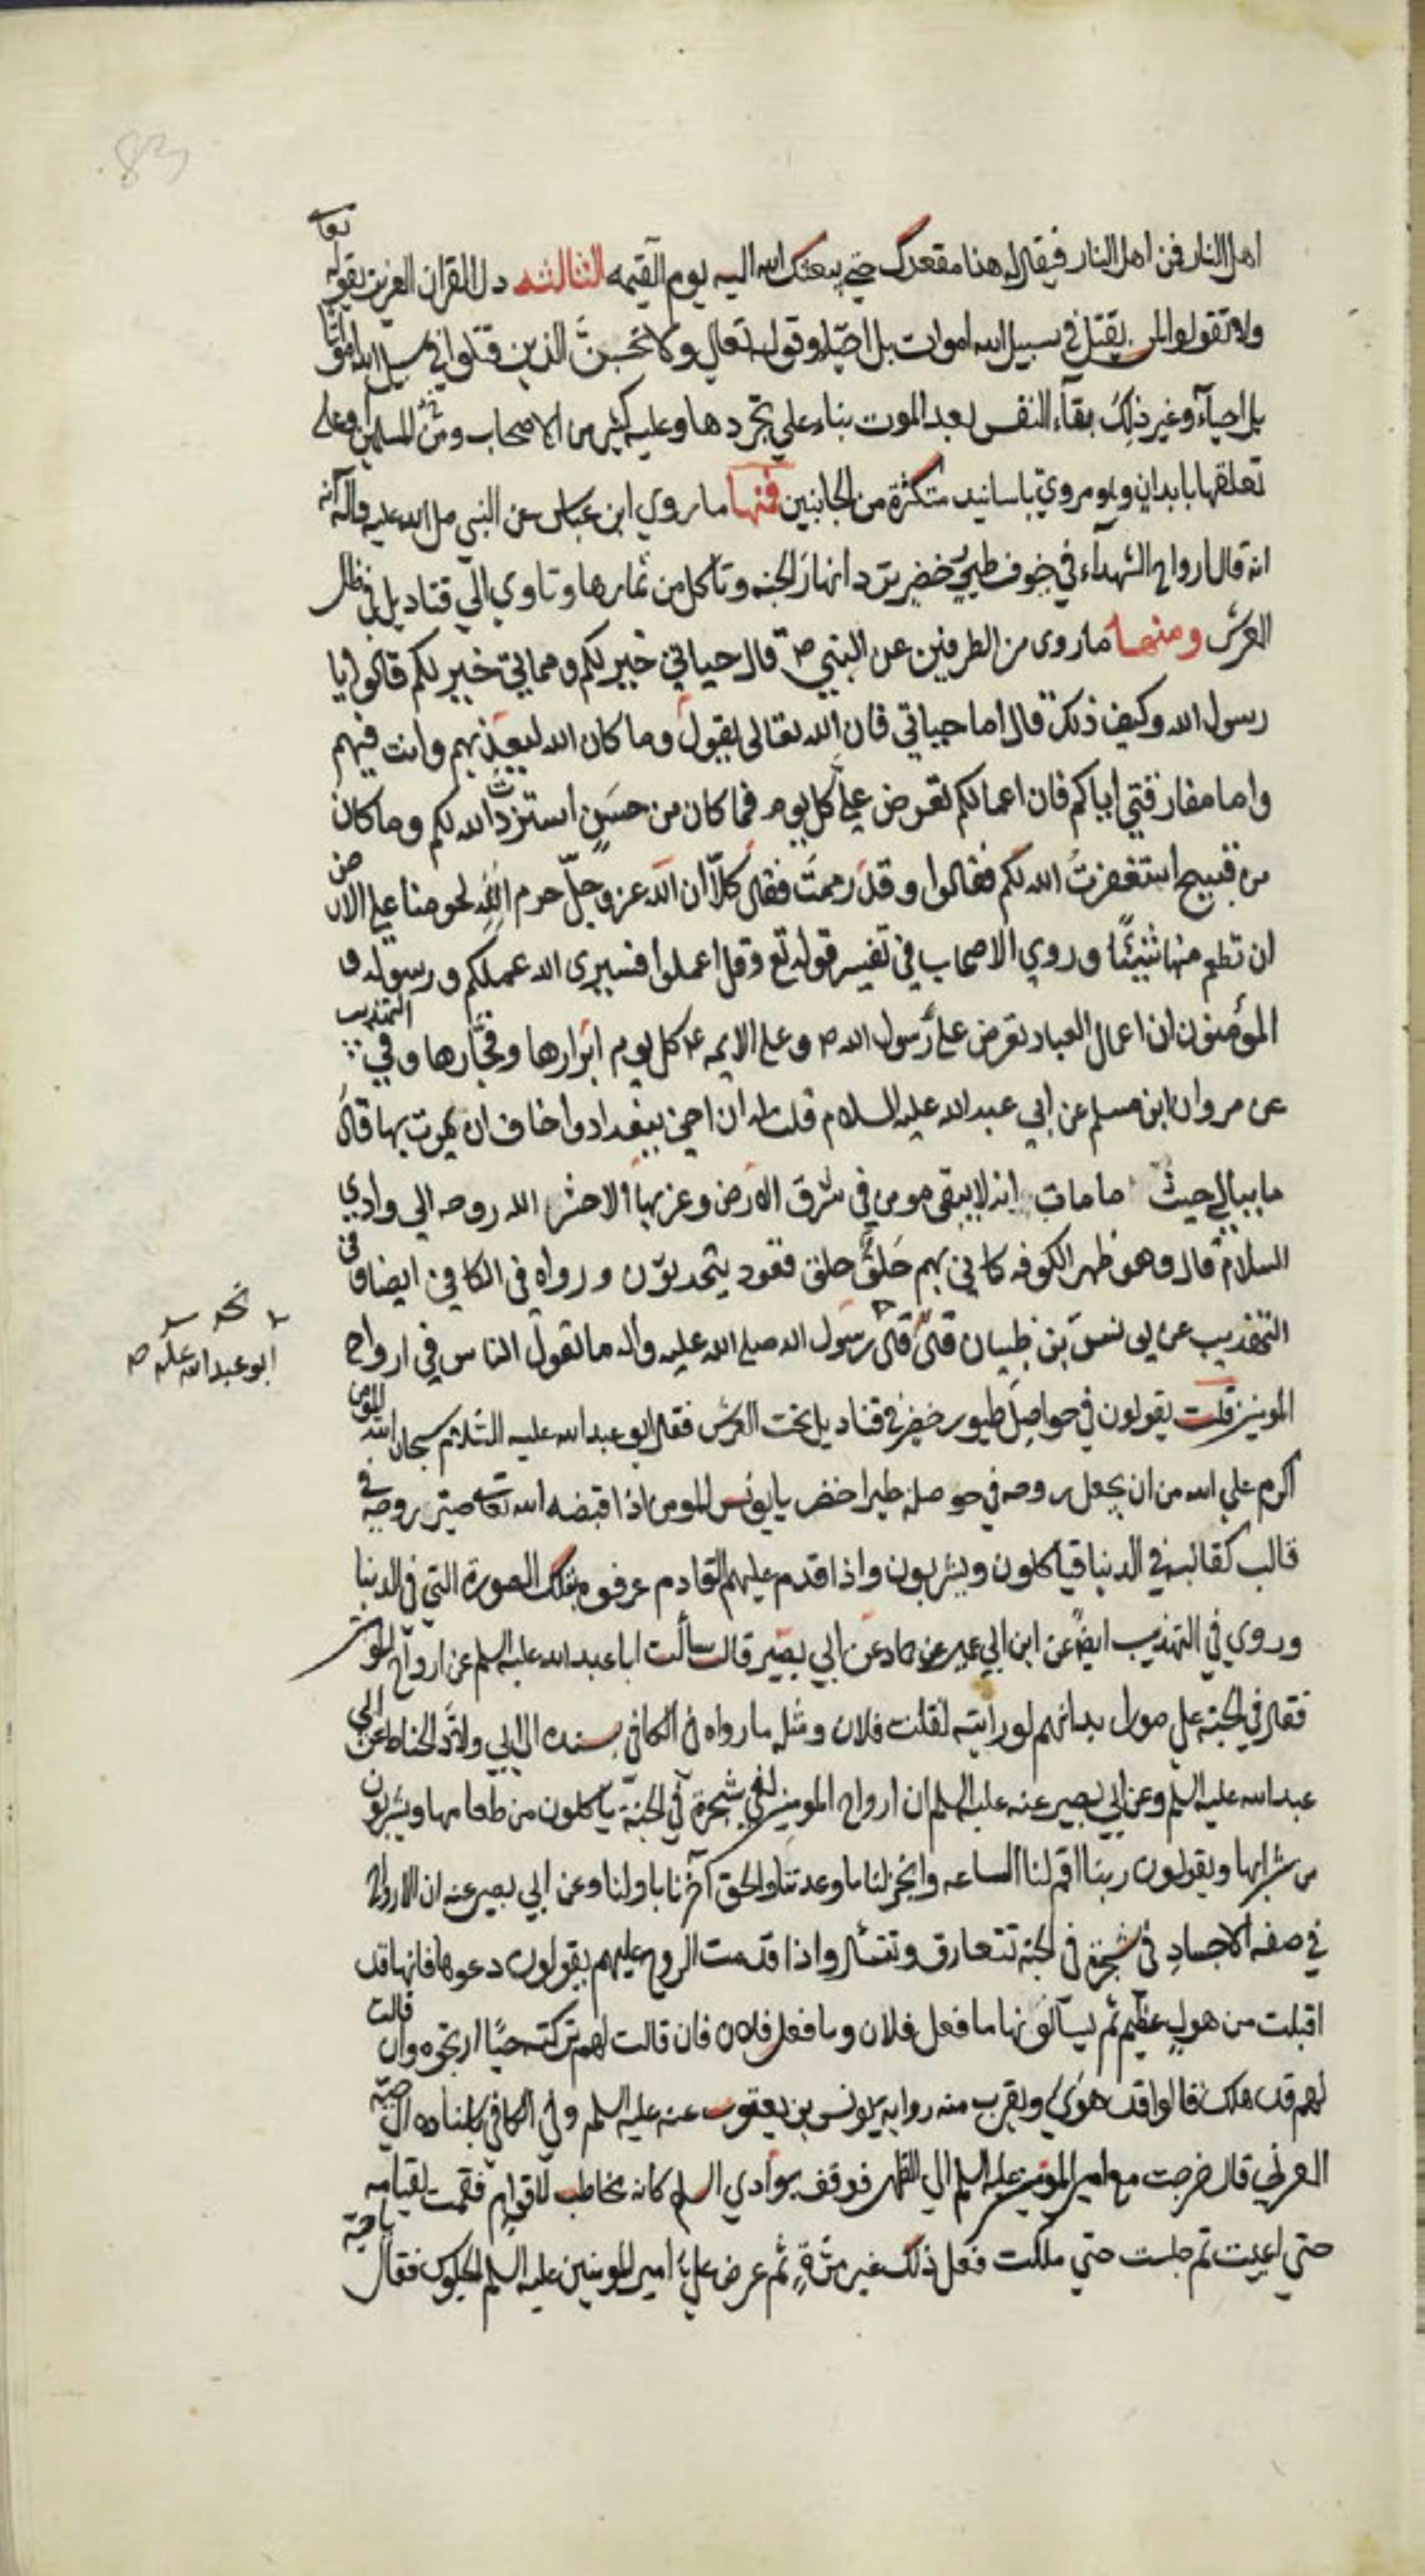 83
اهل النار فمن اهل النار فيقال له هذا مقعدك حتى يبعثك الله اليه يوم القيمه الثالثه دل القران العزيز بقوله تعا
ولا تقولوا لمن يقتل في سبيل الله اموات بل احيا وقوله تعالي ولا تحسبن الذين قتلوا في سبيل الله امواتا
بل احياء وغير ذلك بقآء النفس بعد الموت بناء علي تجردها وعليه كثير من الاصحاب ومن المسلمين وعلى
تعلقها بابدان وهو مروي باسانيد متكثرة من الجانبين فمنها ما روي ابن عباس عن النبي صلى الله عليه وآله انه
انه قال ارواح الشهدآء في جوف طير خضر ترد انهار الجنه وتأكل من ثمارها وتاوي الي قناديل في ظل
العرش ومنها ما روى من الطرفين عن النبي ص قال حياتي خير لكم ومماتي خير لكم قالوا يا
رسول الله وكيف ذلك قال اما حياتي فان الله تعالى يقول وما كان الله ليعذبهم وانت فيهم
واما مفارقتي اياكم فان اعمالكم تعرض علي كل يوم فما كان من حسن استزدت الله لكم وما كان
من قبيح استغفرت الله لكم فقالوا وقد رممت فقال كلا ان الله عز وجل حرم لحومنا علي الارض
ان تطعم منها شيئا وروي الاصحاب في تفسير قوله تع وقل اعملوا فسيرى الله عملكم ورسوله و
المؤمنون ان اعمال العباد تعرض على رسول الله ص وعلى الايمه ع كل يوم ابرارها وفجارها وفي التهذيب
عن مروان ابن مسلم عن ابي عبد الله عليه السلام قلت له ان اخي ببغداد واخاف ان يموت بها قال
ما يبالي حيث ما مات انه لا يبقى مومن في شرق الارض وغربها الا حشر الله روحه الي وادي
السلام قال وهو ظهر الكوفه كاني بهم حلق حلق قعود يتحدثون ورواه في الكافي ايضا وفى
التهذيب عن يونس بن ظبيان قال قال رسول الله صلى الله عليه واله ما تقول الناس في ارواح
نحه
ابو عبد الله عليه ص
المومنين قلت يقولون في حواصل طيور خضر في قناديل تحت العرش فقال ابو عبد الله عليه السلام سبحان الله المومن
اكرم علي الله من ان يجعل روحه في حوصلة طير اخضر يا يونس المومن اذا قبضه الله تعالى صير روحه في
قالب كقالبه في الدنيا فيأكلون ويشربون واذا قدم عليهم القادم عرفوه بتلك الصورة التي في الدنيا
وروي في التهذيب ايضا عن ابن ابي عمير عن حماد عن ابي بصير قال سألت ابا عبد الله عليه السلم عن ارواح المومنين
فقال في الجنة على صور ابدانهم لو رايته لقلت فلان ومثله ما رواه فى الكافي بسنده الى ابي ولاد الحناط عن ابي
عبد الله عليه السلم وعن ابي بصير عنه عليه السلم ان ارواح المومنين لفي شجرة في الجنة يأكلون من طعامها ويشربون
من شرابها ويقولون ربنا اقم لنا الساعه وانجز لنا ما وعدتنا والحق آخرنا باولنا وعن ابي بصير عنه ان الارواح
في صفه الاجساد في شجرة في الجنه تتعارف وتتسأل واذا قدمت الروح عليهم يقولون دعوها فانها قد
اقبلت من هول عظيم ثم يسألونها ما فعل فلان وما فعل فلان فان قالت لهم تركته حيا ارتجوه وان قالت
لهم قد هلك قالوا قد هوى هوى ويقرب منه رواية يونس بن يعقوب عنه عليه السلم وفي الكافي باسناده الي حبه
العرني قال خرجت مع امير المومنين عليه السلم الي الظهر فوقف بوادي السلم كانه يخاطب لاقوام فقمت لقيامه
حتى اعييت ثم جلست حتي مللت فعل ذلك غير مرة ثم عرض علي امير المومنين عليه السلم الجلوس فقال يا حبة